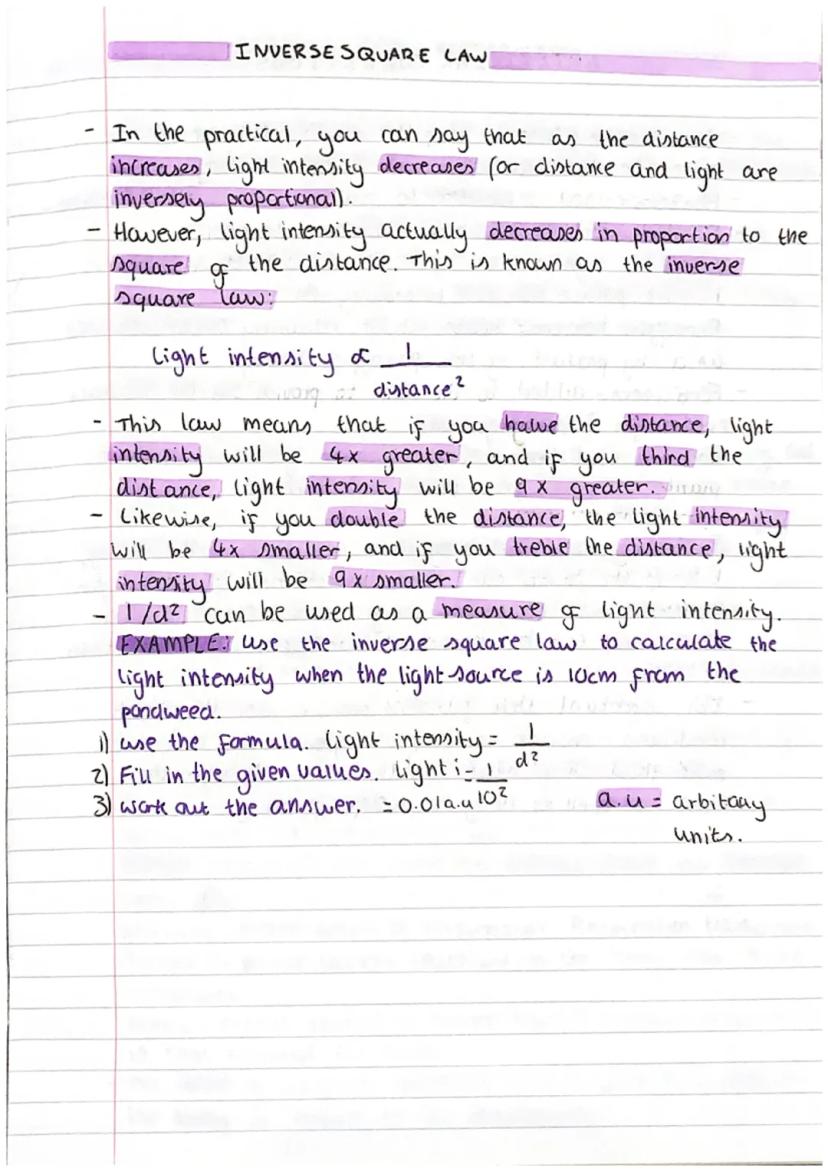 INVERSE SQUARE LAW
- In the practical, you can say that as the distance
increases, light intensity decreases (or distance and light are
inversely proportional).
- However, light intensity actually decreases in proportion to the
square of the distance. This is known as the inverse
square law:
light intensity ∝ 1/distance²
- This law means that if you halve the distance, light
intensity will be 4x greater, and if you third the
distance, light intensity will be 9x greater.
- Likewise, if you double the distance, the light intensity
will be 4x smaller, and if you treble the distance, light
intensity will be 9x smaller.
- 1/d² can be used as a measure of light intensity.
EXAMPLE: Use the inverse square law to calculate the
light intensity when the light source is 10cm from the
pondweed.
1) Use the formula. Light intensity = 1/d²
2) Fill in the given values. light i = 1/10²
3) Work out the answer. = 0.01a.u a.u = arbitary
units.